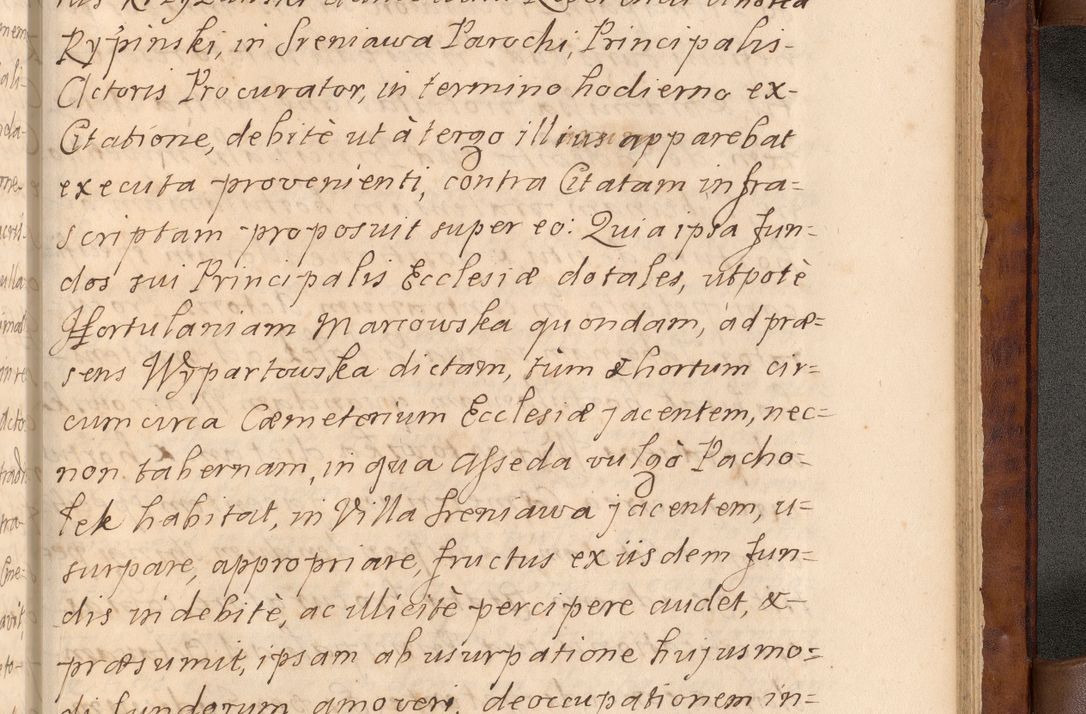 Rypinski, in Sreniawa Parochi, Principalis
Actoris Procurator, in termino hodierno ex-
Citatione, debitè ut à tergo illius apparebat
executa provenienti, contra Citatam infra=
scriptam proposuit super eo: Quia ipsa fun=
dos sui Principalis Ecclesiæ dotales, utpotè
Hortulaniam Marcowska quondam, ad præ=
sens Wypartowska dictam, tùm & hortum cir=
cumcirca Cæmeterium Ecclesiæ jacentem, nec=
non tabernam, in qua Asseda vulgò Pacho-
łek habitat, in Villa Sreniawa jacentem, u=
surpare, appropriare, fructus ex iisdem fun=
dis indebitè, ac illicitè percipere audet, &
præsumit, ipsam ab usurpatione hujusmo=
di fundorum amoveri, deoccupationem in=